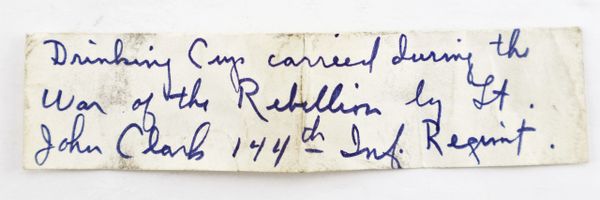 Drinking Cup carried during the
War of the Rebellion by Lt.
John Clark 144th Inf. Regimt.